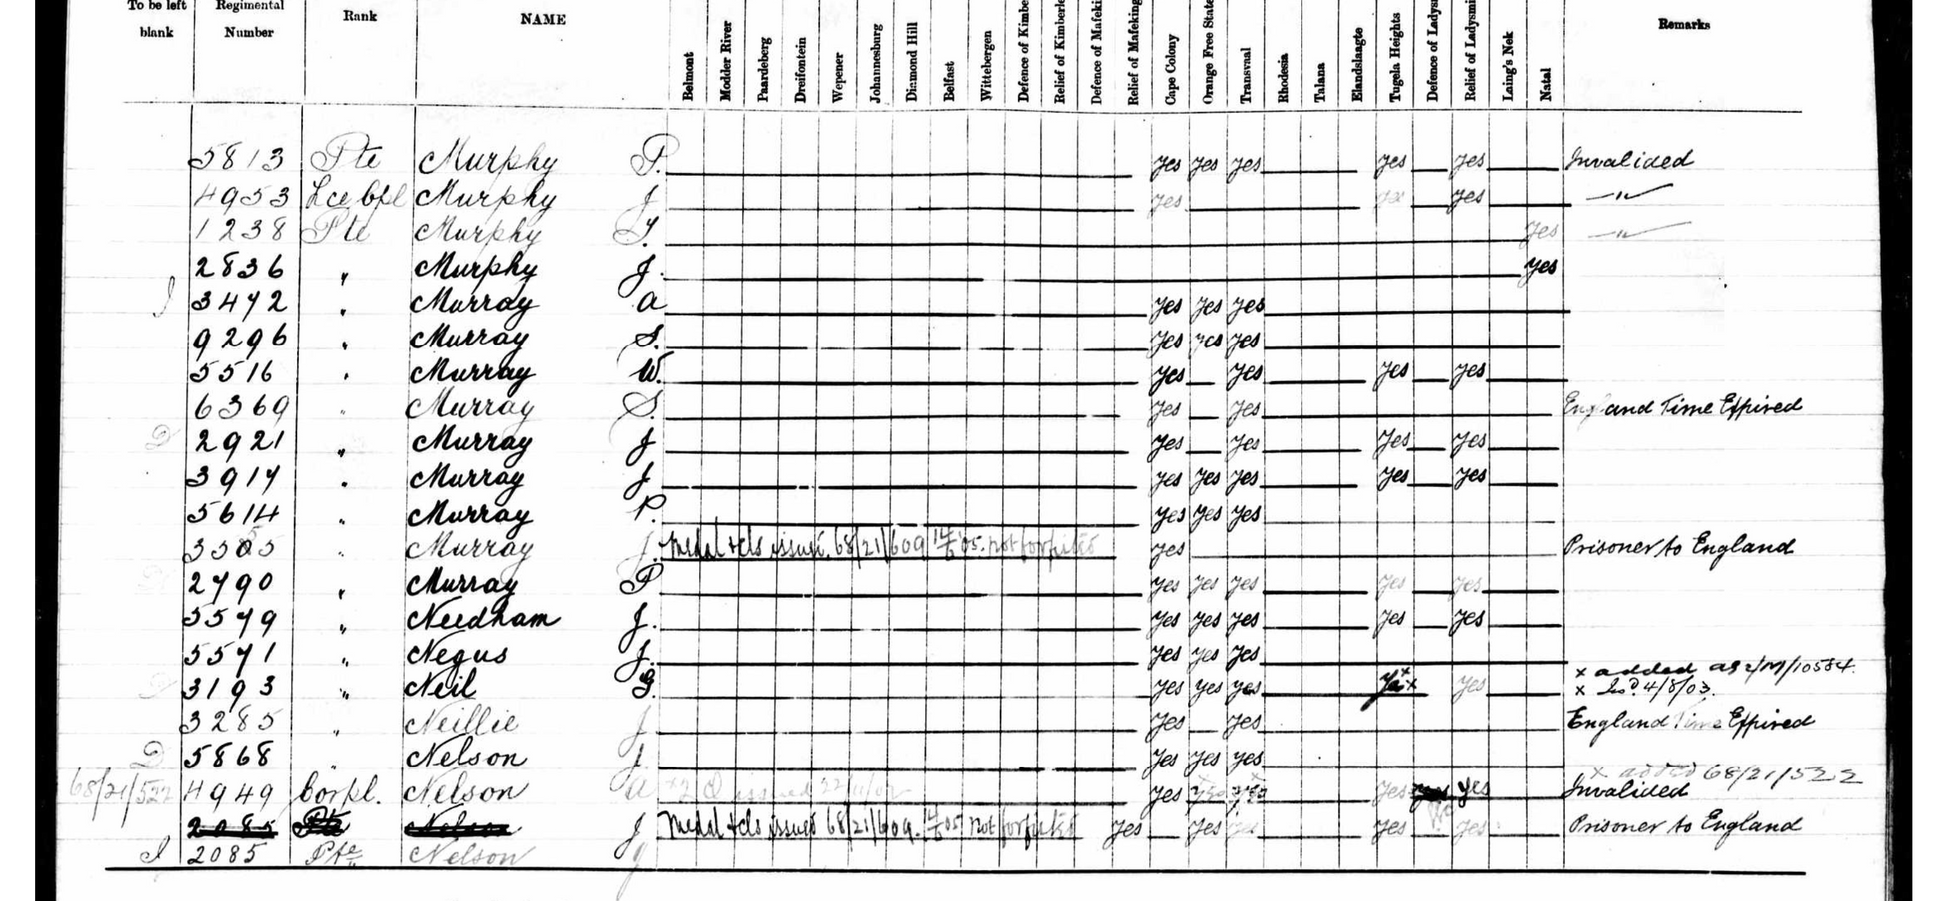 To be left blank Regimental Number Rank NAME Belmont Modder River Paardeberg Dreifontein Wepener Johannesburg Diamond Hill Belfast Wittebergen Defence of Kimbe Relief of Kimberle Defence of Mafeki Relief of Mafeking Cape Colony Orange Free State Transvaal Rhodesia Talana Elandslaagte Tugela Heights Defence of Ladys Relief of Ladysmi Laing's Nek Natal Remarks
5813 Pte Murphy P. yes yes yes yes yes Invalided
4953 Lce Cpl Murphy J yes yes yes — " —
1238 Pte Murphy T. yes — " —
2836 " Murphy J. yes
3472 " Murray A yes yes yes
9296 " Murray S. yes yes yes
5516 " Murray W. yes yes yes yes
6369 " Murray S. yes yes England Time Expired
D 2921 " Murray J yes yes yes yes
3914 " Murray J. yes yes yes yes yes
5614 " Murray P. yes yes yes
" Murray J. Medal & cls issued. 68/21/609 05. not forfeited yes Prisoner to England
2790 " Murray P yes yes yes yes yes
5579 " Needham J. yes yes yes yes yes
5571 " Negus J. yes yes yes
x added
3193 " Neil G. yes yes yes yes x yes x 4/8/03.
3285 " Neillie J yes yes England Time Expired
D 5868 " Nelson J. yes yes yes
x added 68/21/522
68/21/522 4949 Corpl. Nelson A issued yes yes yes yes yes yes Invalided
2085 Pte Nelson J Medal & cls issued 68/21/609. 05 not forfeited yes yes yes yes yes Prisoner to England
2085 Pte Nelson J